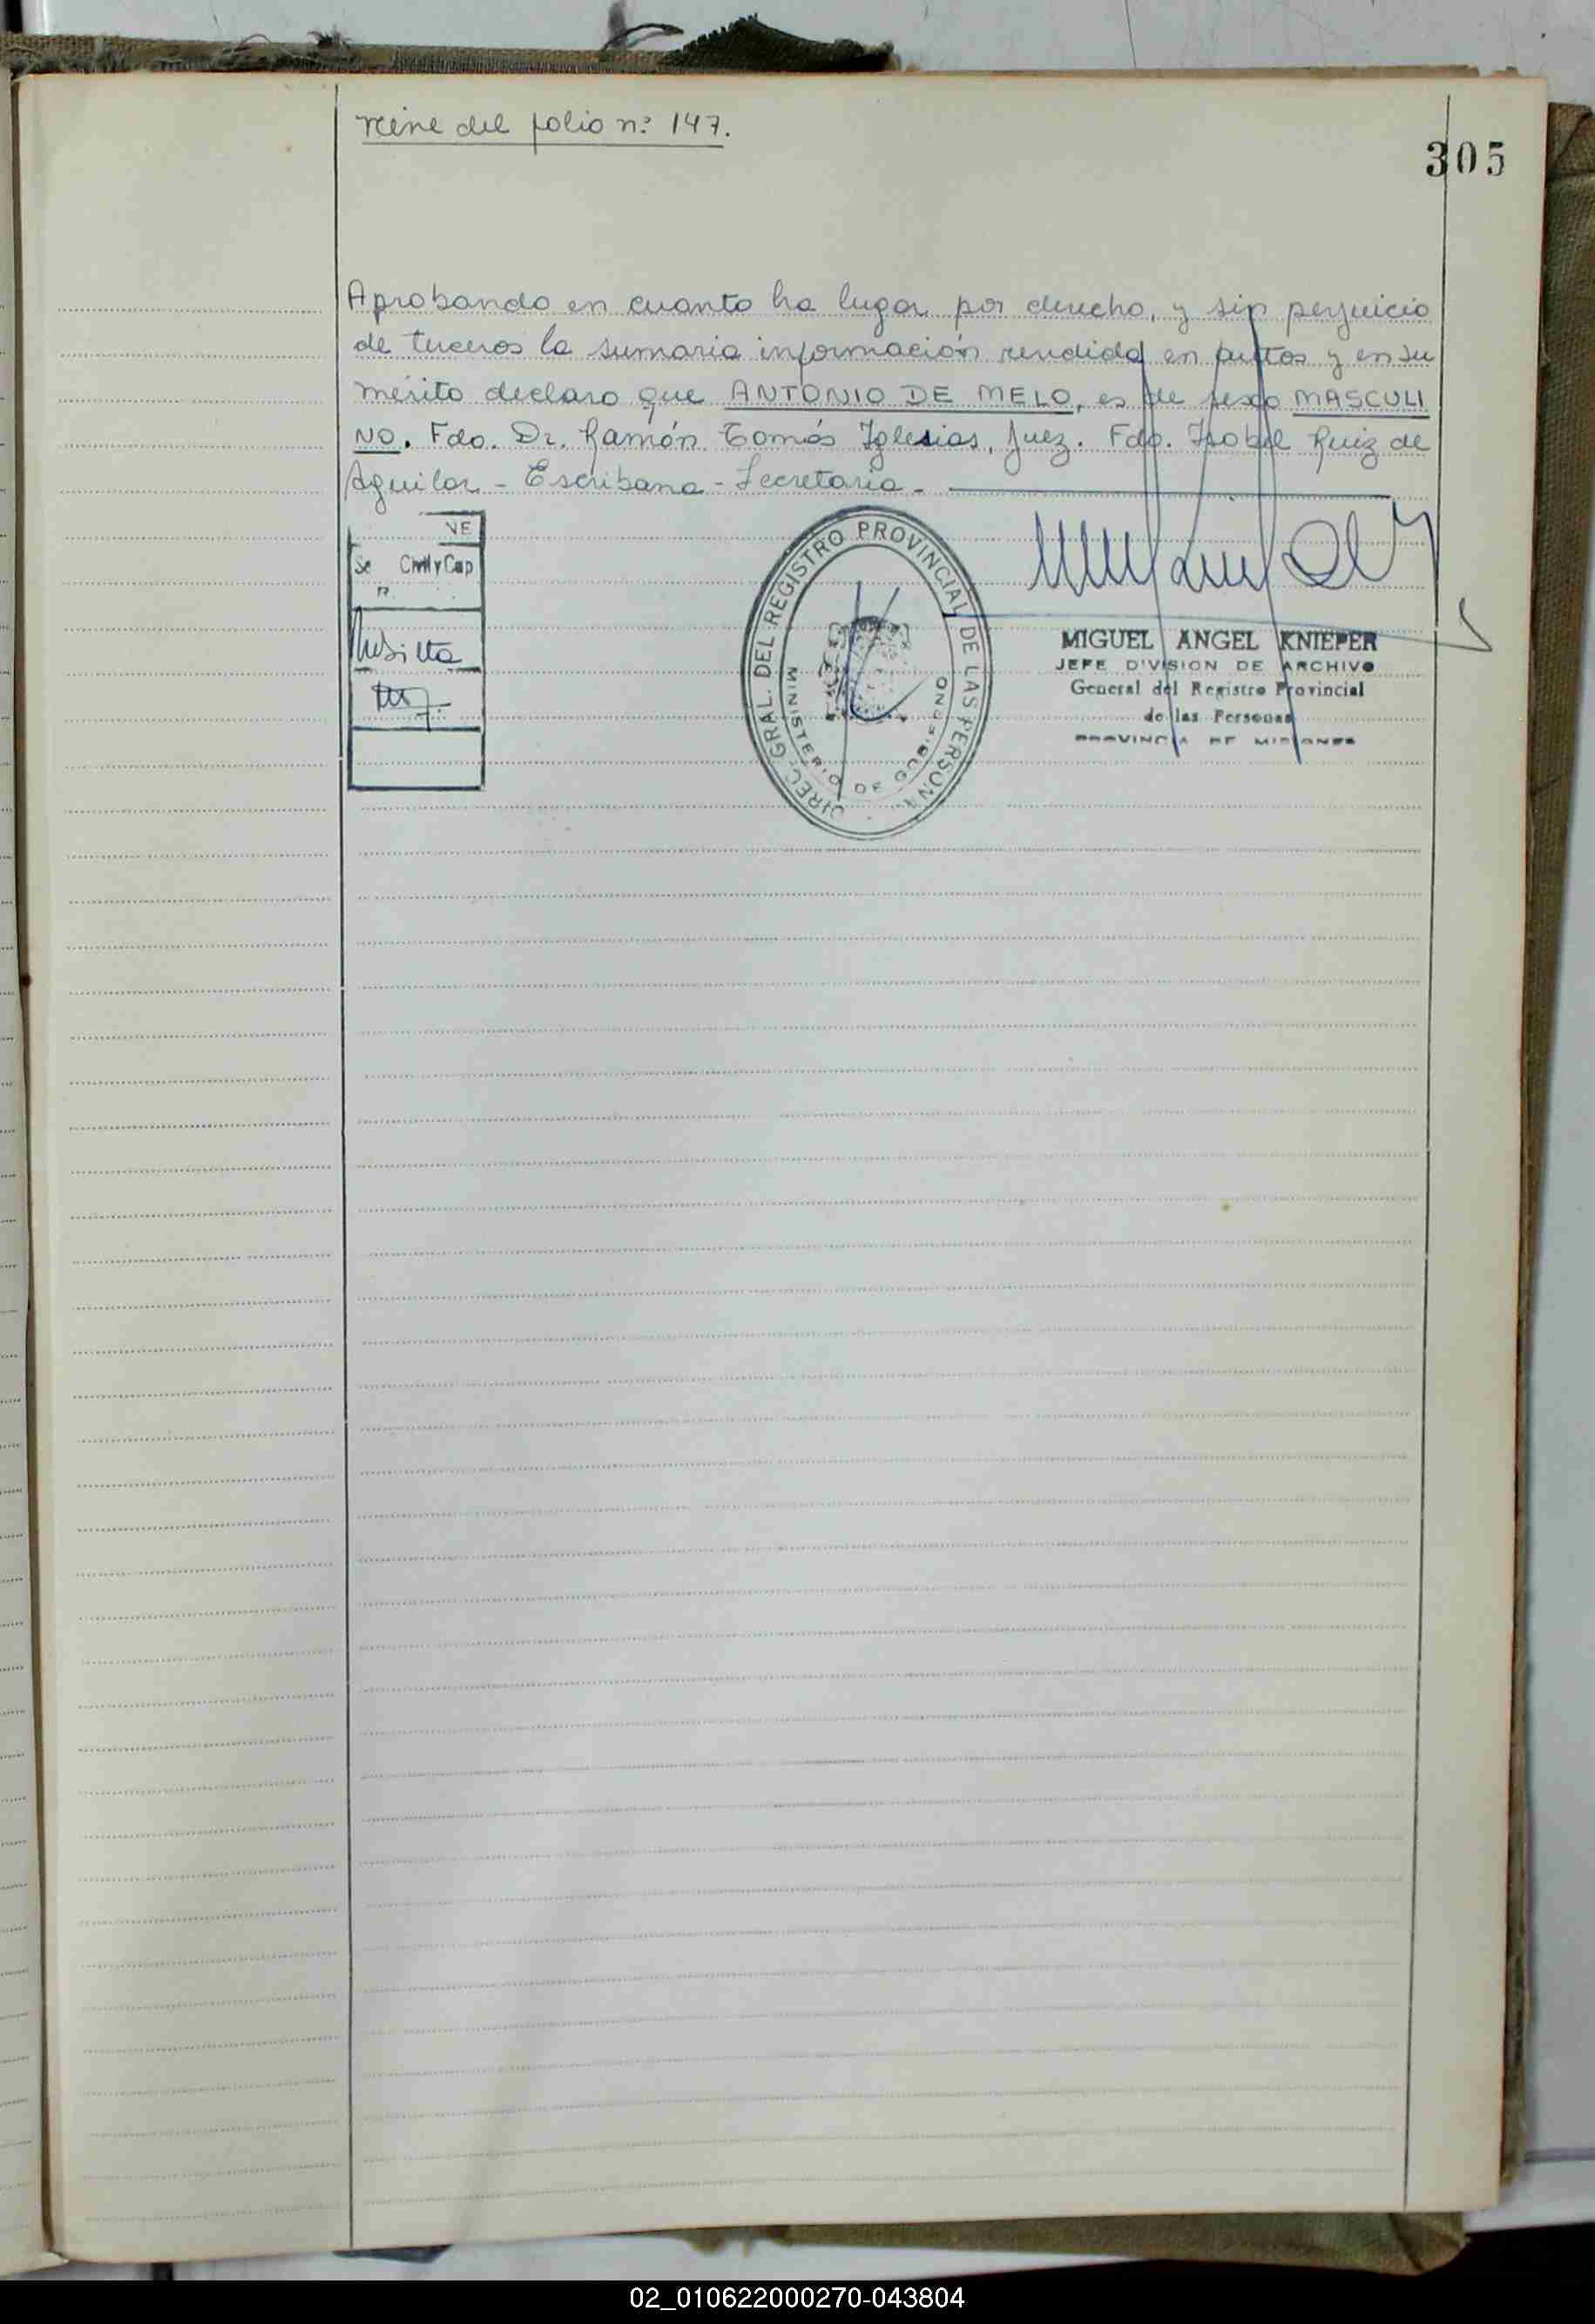 viene del folio nº 147.
305
Aprobando en cuanto ha lugar por derecho, y sin perjuicio
de terceros la sumaria información rendida en autos y en su
mérito declaro que ANTONIO DE MELO, es de sexo MASCULI
NO. Fdo. Dr. Ramón Tomás Iglesias, Juez. Fdo. Isabel Ruiz de
Aguilar - Escribana - Secretaria.
VE
Se Civil y Cap
DIREC. GRAL. DEL REGISTRO PROVINCIAL DE LAS PERSONA
MINISTERIO DE GOBIERNO
MIGUEL ANGEL KNIEPER
JEFE DIVISION DE ARCHIVO
General del Registro Provincial
de las Personas
PROVINCIA DE MISIONES
02_010622000270-043804